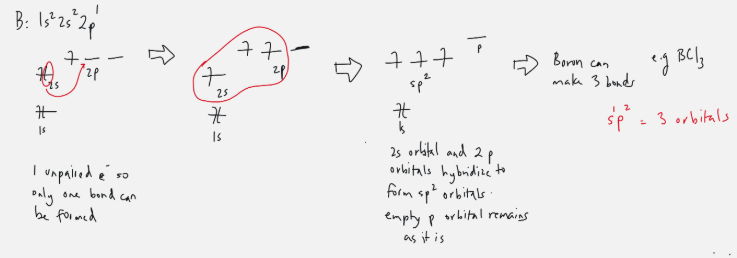 B: 1s² 2s² 2p¹
2s
2p
1s
1 unpaired e⁻ so
only one bond can
be formed
2s
2p
1s
sp²
p
1s
2s orbital and 2 p
orbitals hybridize to
form sp² orbitals.
empty p orbital remains
as it is
Boron can
make 3 bonds
e.g BCl₃
s¹p² = 3 orbitals